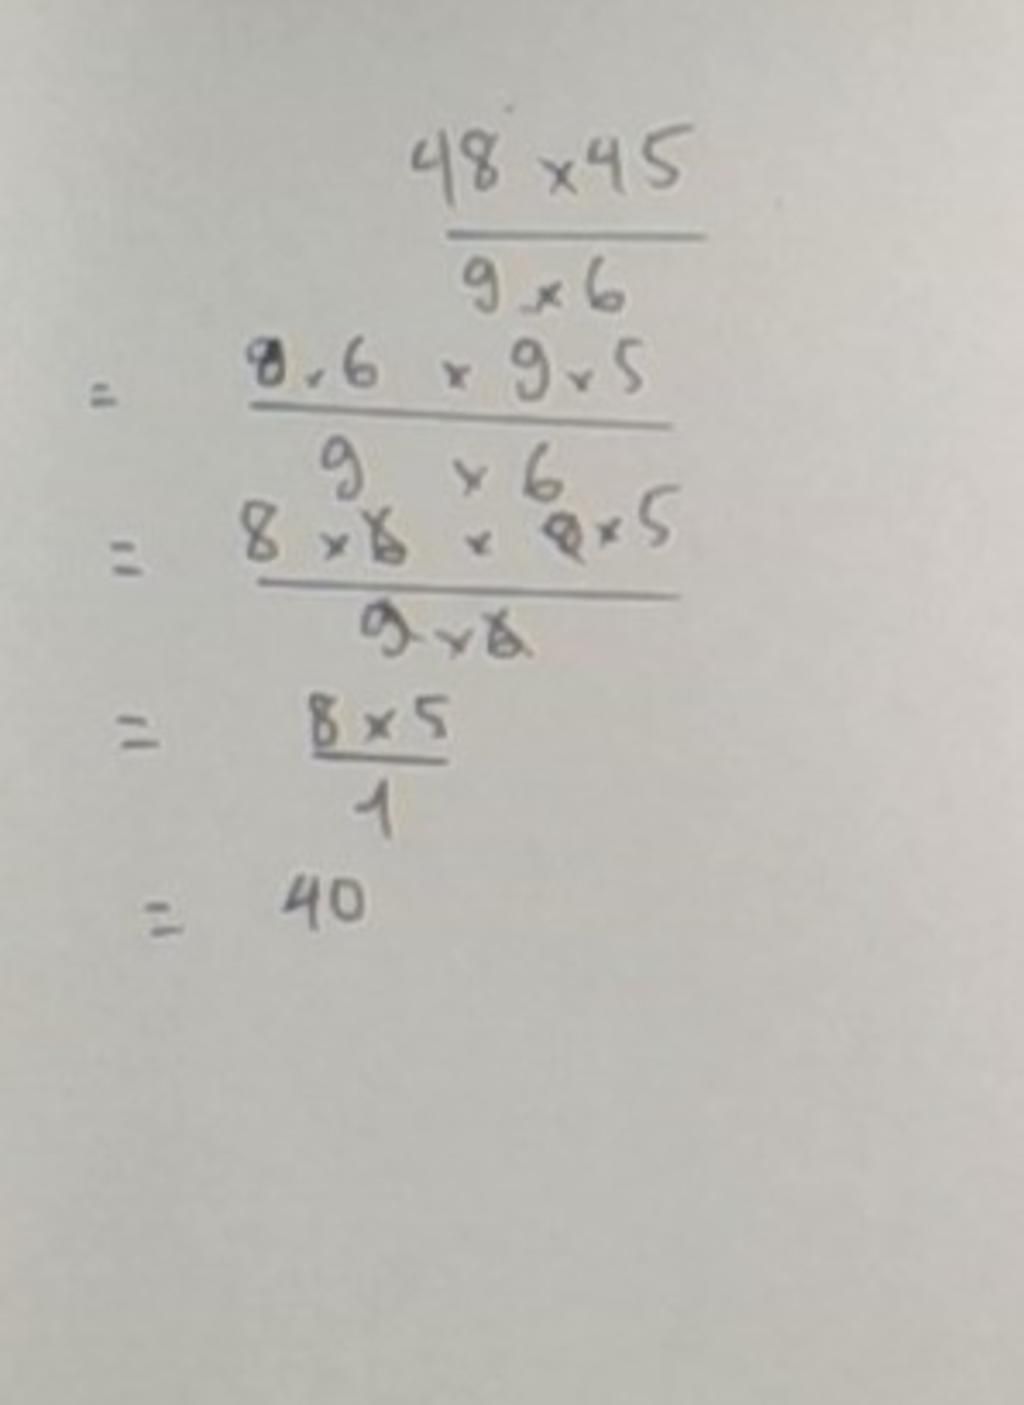 48 × 45
9 × 6
= 8 × 6 × 9 × 5
9 × 6
= 8 × 6 × 9 × 5
9 × 6
= 8 × 5
1
= 40